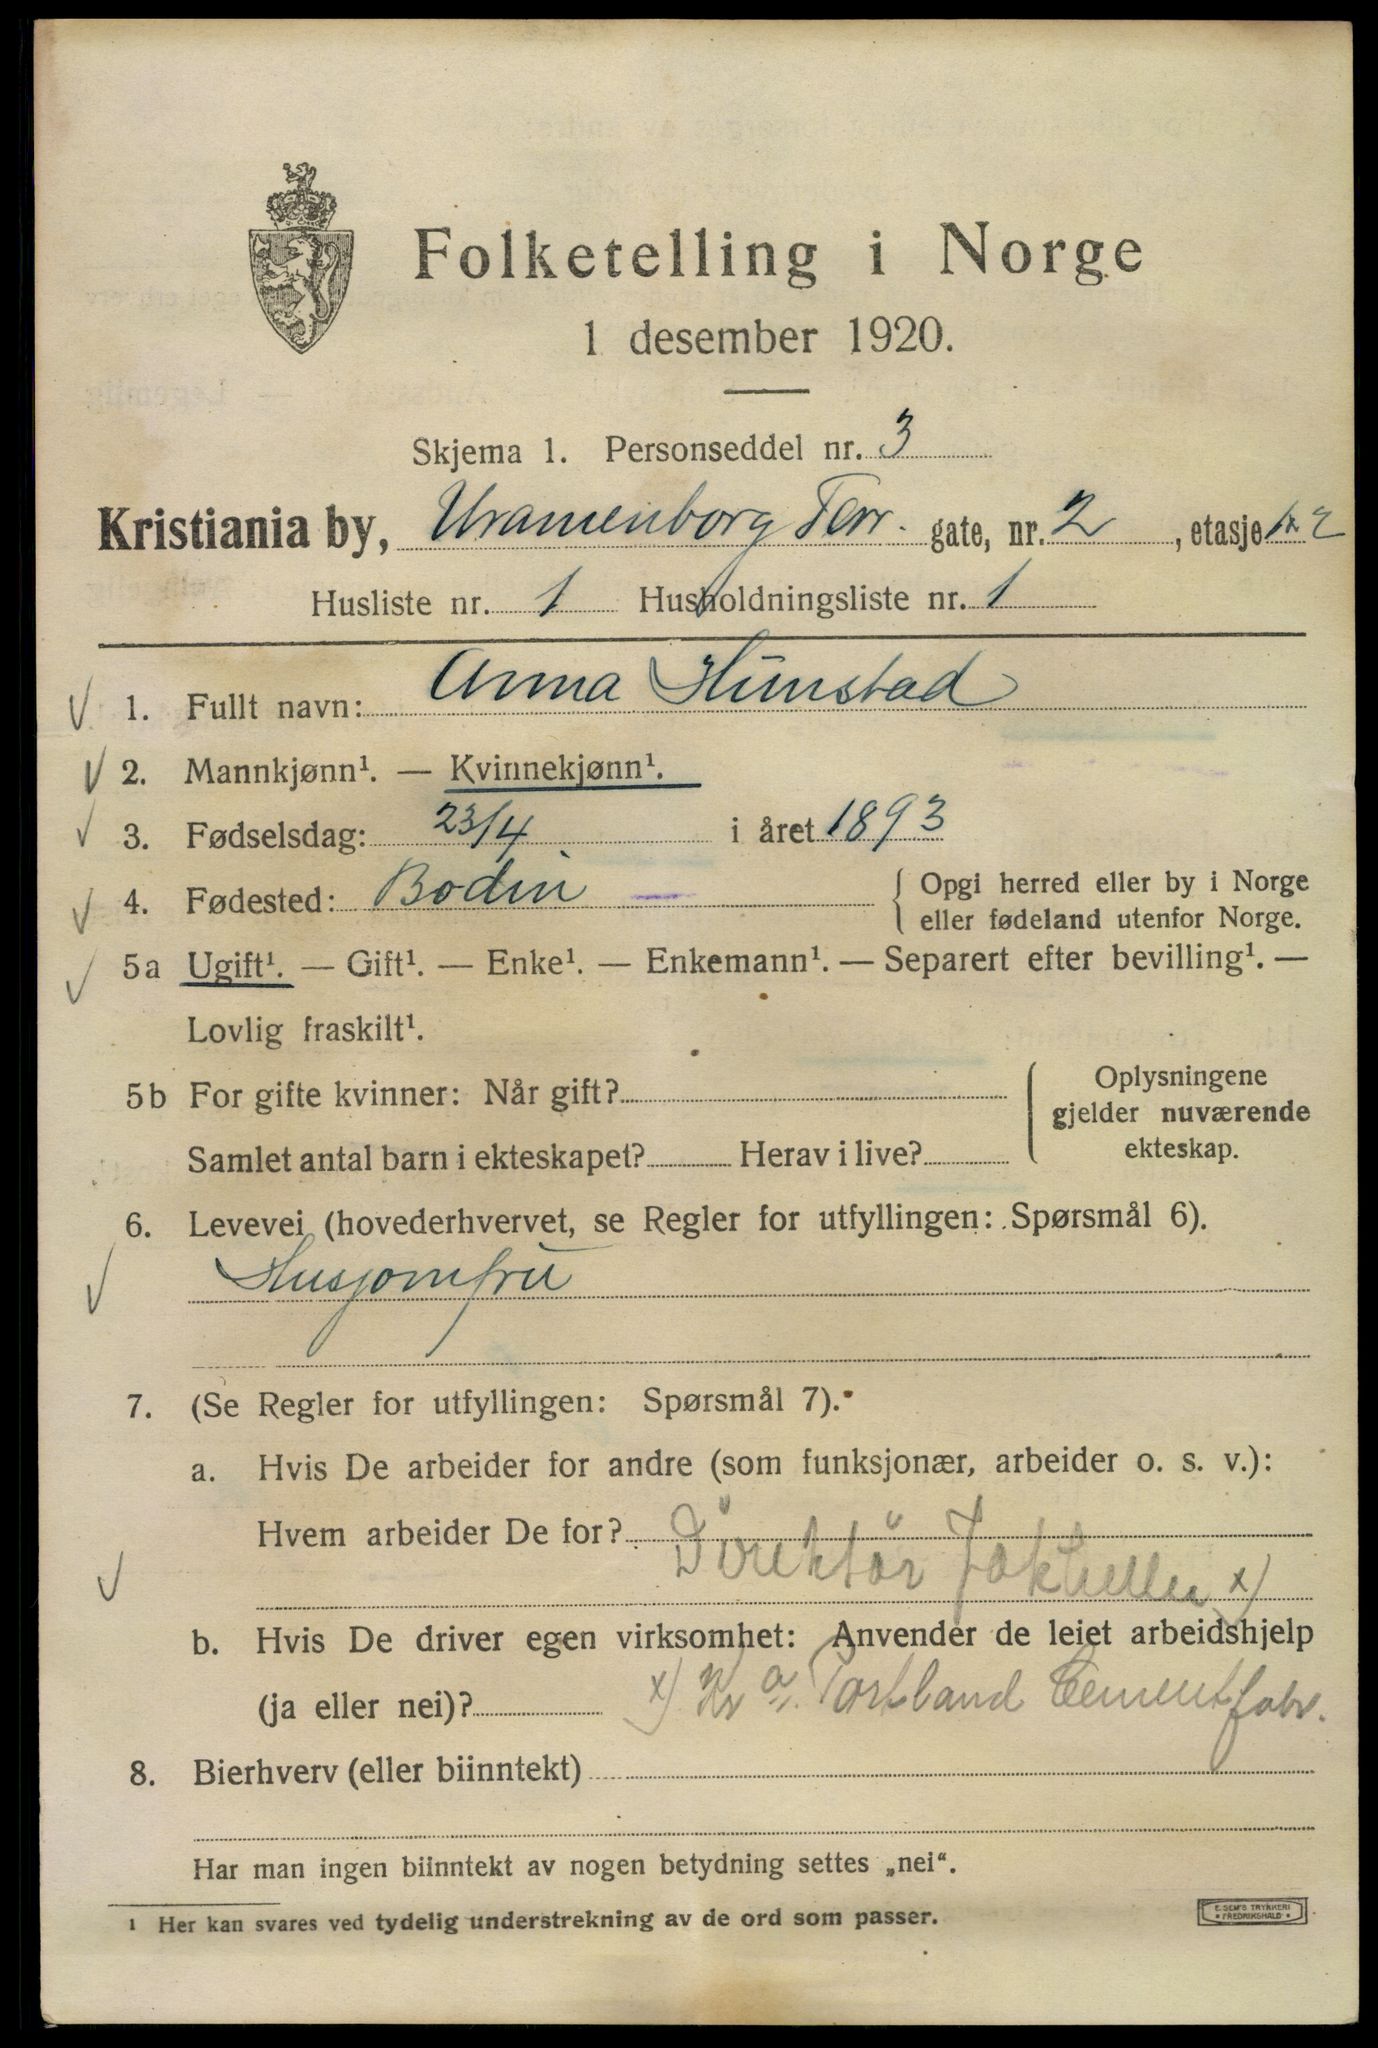 Folketelling i Norge
1 desember 1920.
Skjema 1. Personseddel nr. 3
Kristiania by, Uranienborg Terr. gate, nr. 2, etasje 1 x 2
Husliste nr. 1 Husholdningsliste nr. 1
1. Fullt navn: Anna Hunstad
2. Mannkjønn¹. — Kvinnekjønn¹.
3. Fødselsdag: 23/4 i året 1893
4. Fødested: Bodin { Opgi herred eller by i Norge
eller fødeland utenfor Norge.
5a Ugift¹. — Gift¹. — Enke¹. — Enkemann¹. — Separert efter bevilling¹. —
Lovlig fraskilt¹.
5b For gifte kvinner: Når gift?
Samlet antal barn i ekteskapet? Herav i live?
{ Oplysningene
gjelder nuværende
ekteskap.
6. Levevei (hovederhvervet, se Regler for utfyllingen: Spørsmål 6).
Husjomfru
7. (Se Regler for utfyllingen: Spørsmål 7).
a. Hvis De arbeider for andre (som funksjonær, arbeider o. s. v.):
Hvem arbeider De for?
Direktør x)
b. Hvis De driver egen virksomhet: Anvender de leiet arbeidshjelp
(ja eller nei)? x) Kr a. Portland Cementfabr.
8. Bierhverv (eller biinntekt)
Har man ingen biinntekt av nogen betydning settes „nei“.
¹ Her kan svares ved tydelig understrekning av de ord som passer.
E. SEM'S TRYKKERI
• FREDRIKSHALD •